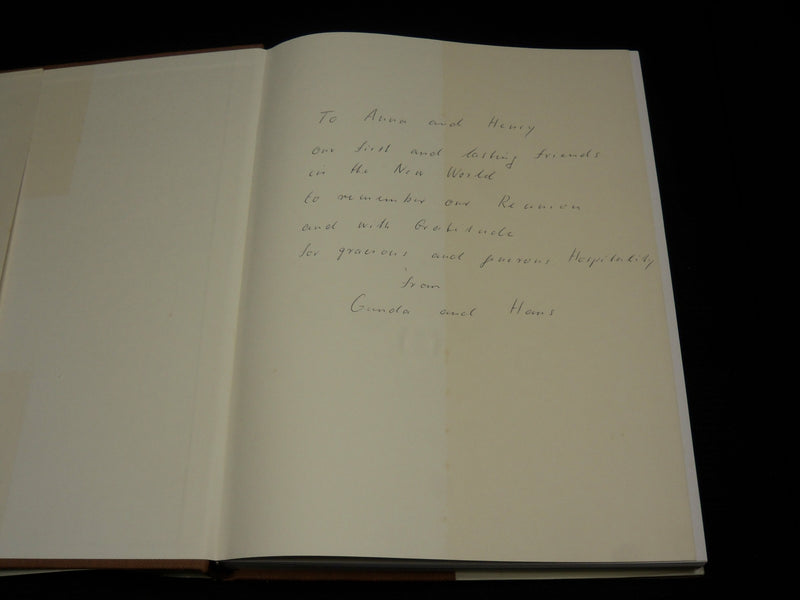 To Anna and Henry
our first and lasting friends
in the New World
to remember our Reunion
and with Gratitude
for gracious and generous Hospitality
from
Gunda and Hans